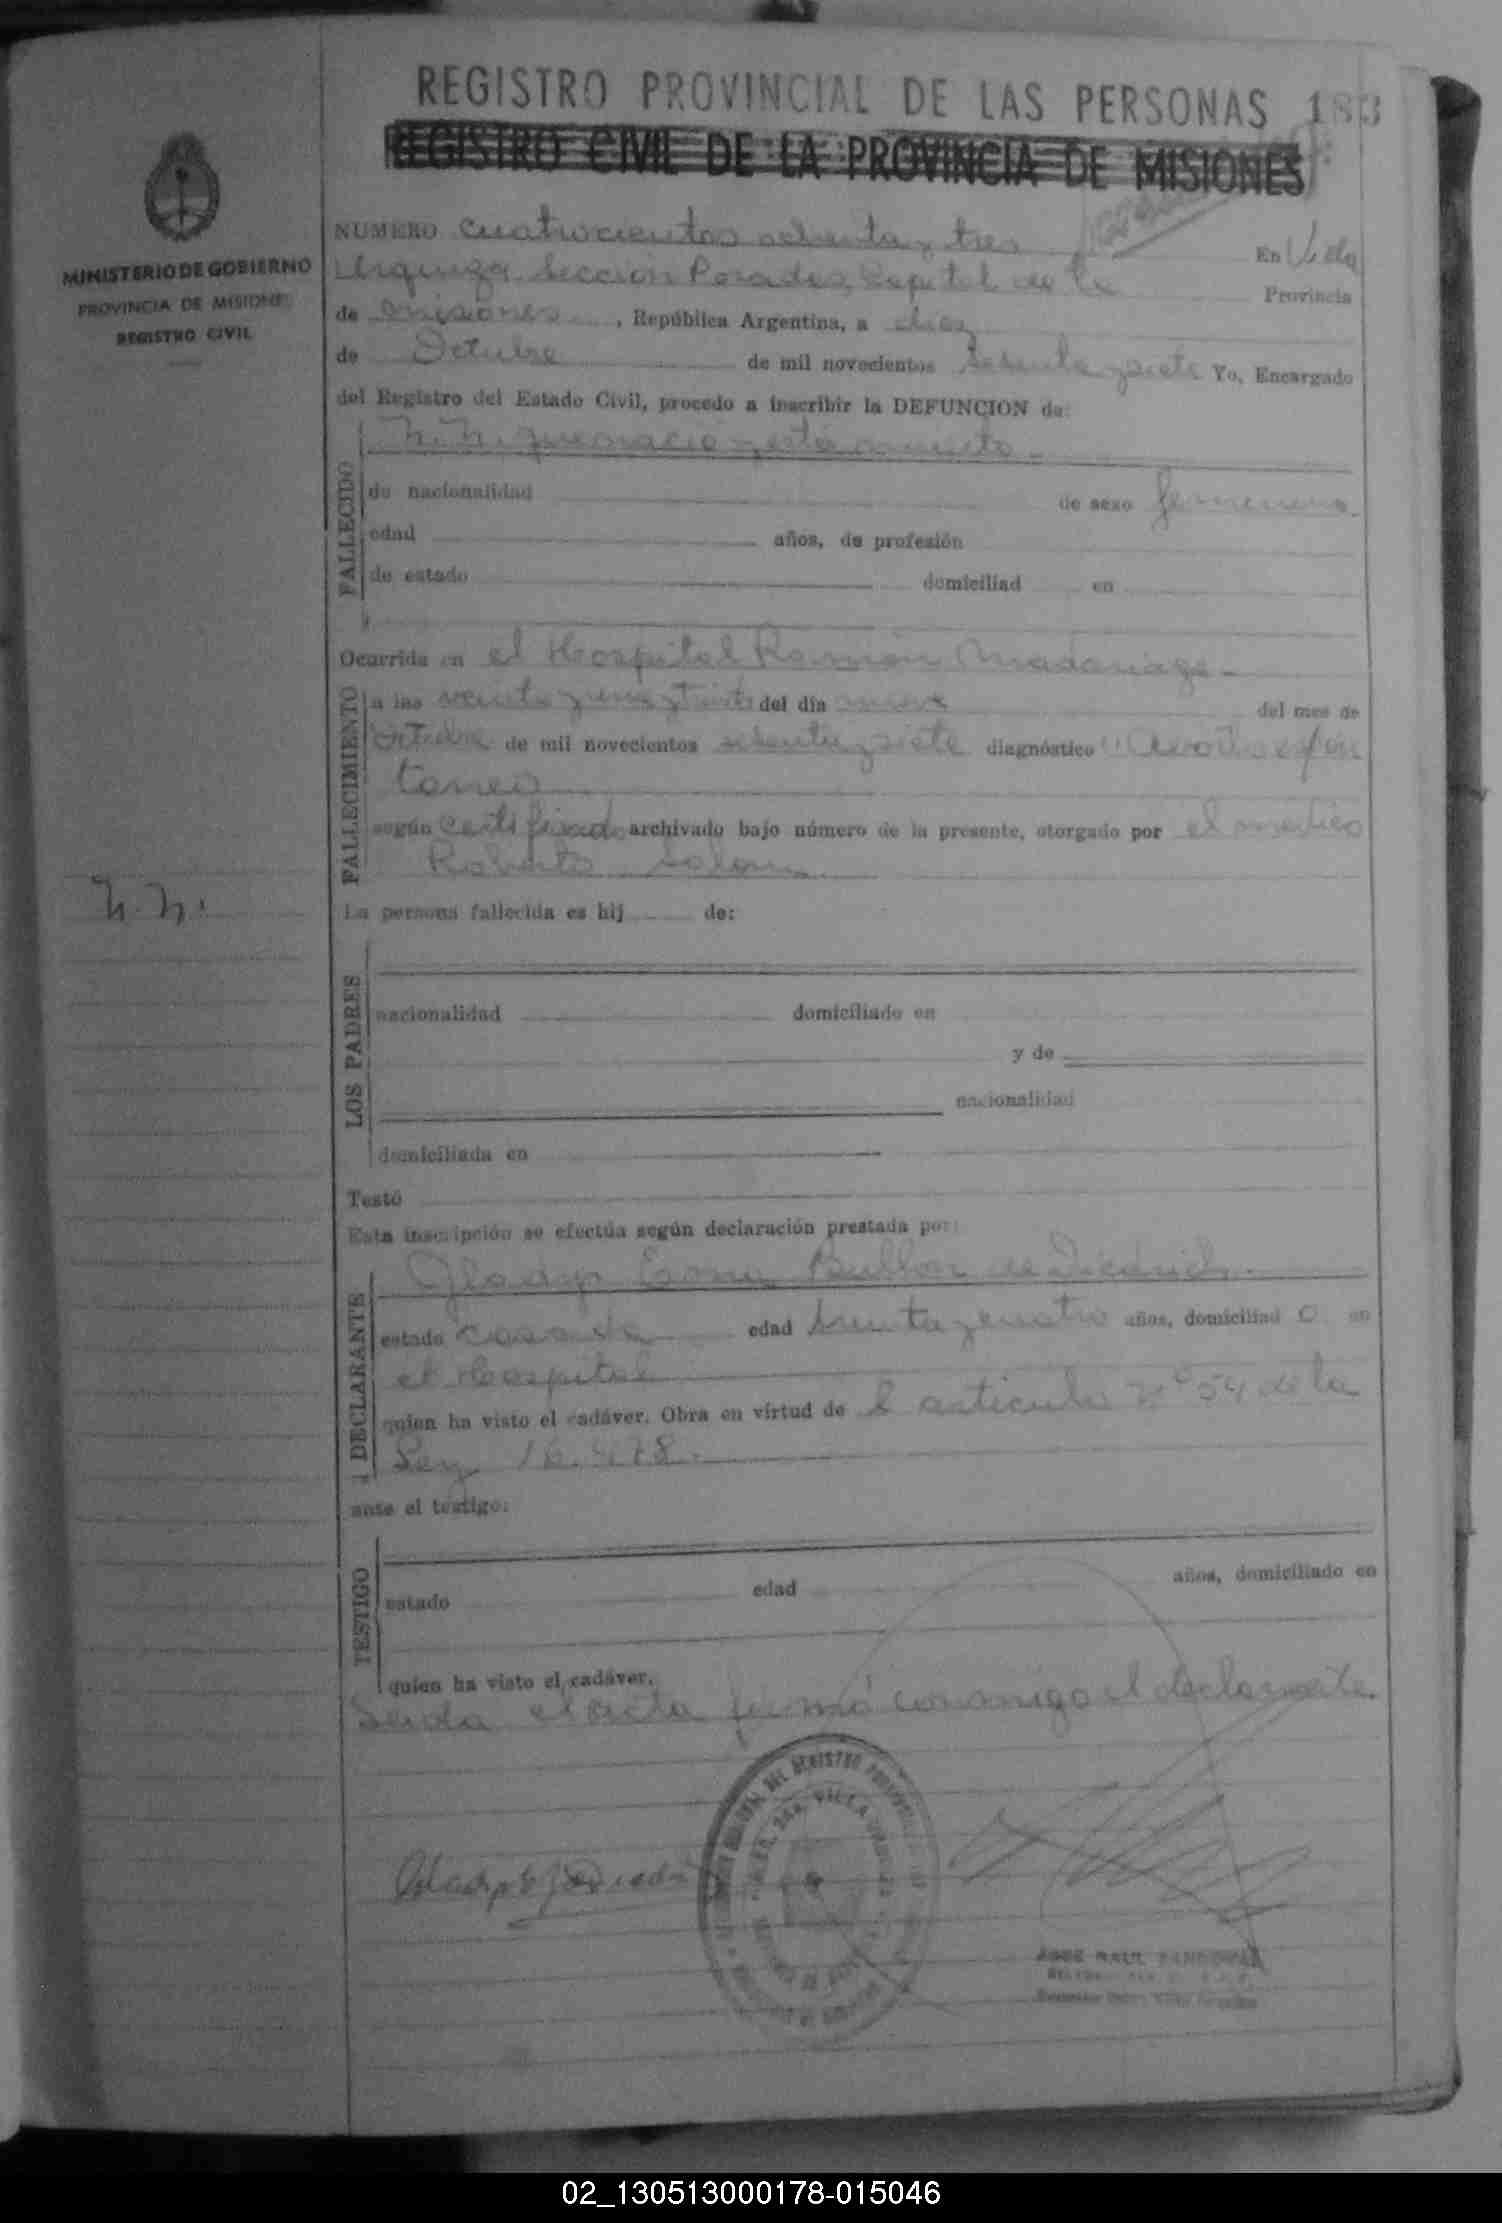 REGISTRO PROVINCIAL DE LAS PERSONAS 183
REGISTRO CIVIL DE LA PROVINCIA DE MISIONES
MINISTERIO DE GOBIERNO
PROVINCIA DE MISIONES
REGISTRO CIVIL
NUMERO cuatrocientos ochenta y tres En Villa
Urquiza Sección Posadas, Capital de la Provincia
de Misiones, República Argentina, a diez
de Octubre de mil novecientos setenta y siete Yo, Encargado
del Registro del Estado Civil, procedo a inscribir la DEFUNCION de:
N.N. que nació y está muerto
FALLECIDO
de nacionalidad de sexo femenino
edad años, de profesión
de estado domiciliad en
Ocurrida en el Hospital Ramón Madariaga
FALLECIMIENTO
a las veinte y una y treinta del día nueve del mes de
Octubre de mil novecientos setenta y siete diagnóstico "Aborto espon
taneo
según certificado archivado bajo número de la presente, otorgado por el médico
Roberto
N.N.
La persona fallecida es hij de:
LOS PADRES
nacionalidad domiciliado en
y de
nacionalidad
domiciliada en
Testó
Esta inscripción se efectúa según declaración prestada por:
DECLARANTE
Gladys de
estado casada edad treinta y cuatro años, domiciliad o en
el Hospital
quien ha visto el cadáver. Obra en virtud de l articulo Nº 54 de la
Ley 16.478.
ante el testigo:
TESTIGO
estado edad años, domiciliado en
quien ha visto el cadáver.
Leida el acta firmó conmigo el declarante.
JOSE RAUL
02_130513000178-015046